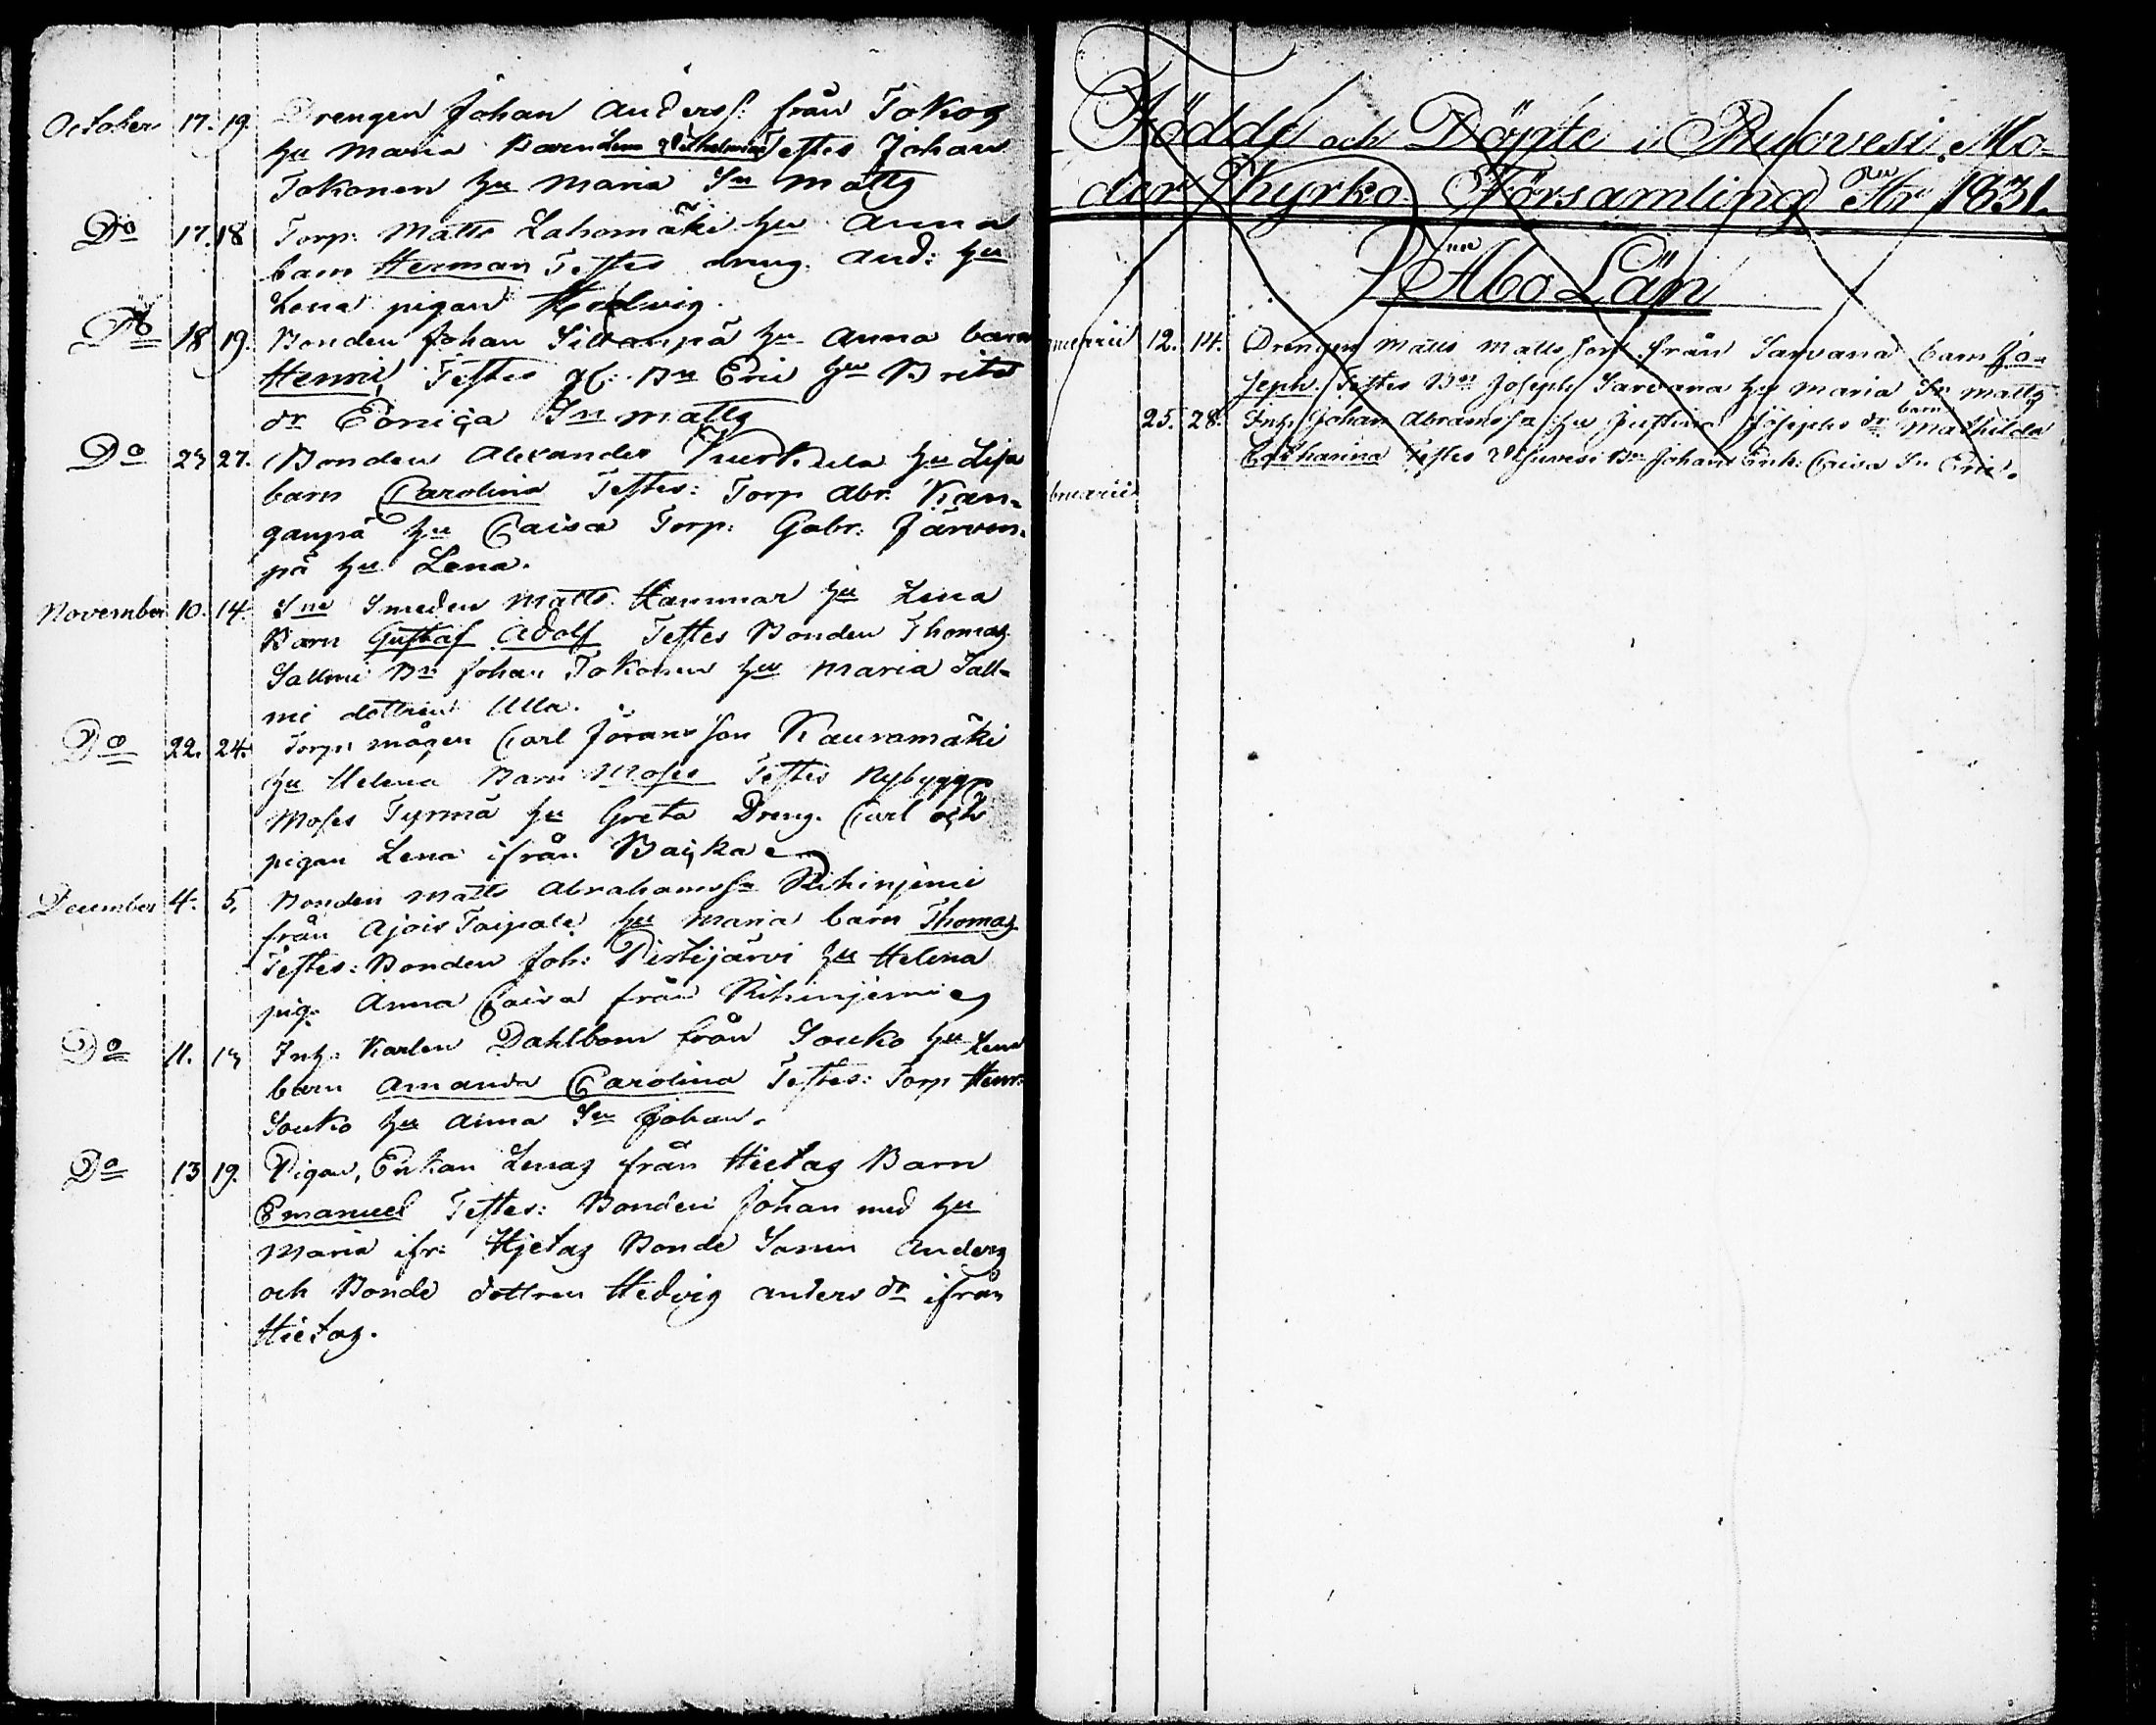 October 17. 19. Drengen Johan Anders: från Tokog
hu Maria Barn Lena Vilhelmina Testes Johan
Tokonen hu Maria Sn Matts
Do 17. 18 Torp: Matts Lahomäki hu Anna
barn Herman Testes dreng. And: hu
Lena pigan Hedvig.
Do 18 19. Bonden Johan Sillanpä hu Anna barn
Henric Testes Bn Eric hu Brita
dr Matts
Do 23 27. Bonden Alexander Kurkela hu Lisa
barn Carolina Testes: Torp Abr: Kan-
ganpä hu Caisa Torp: Gabr: Järven-
pä hu Lena.
November 10. 14. Sne Smeden Matts Hammar hu Lena
Barn Gustaf Adolf Testes Bonden Thomas
Sallmi Bn Johan Tokonen hu Maria Sall-
mi dottren Ulla.
Do 22. 24. Torp: mågen Carl Jöransson Kauramäki
hu Helena Barn Moses Testes Nybygg
Moses Tyrmä hu Greta Dreng. Carl och
pigan Lena ifrån
December 4. 5. Bonden Matts Abrahamss: Rihinjemi
från Ajois Taipale hu Maria barn Thomas
Testes: Bonden Joh: Pestijärvi hu Helena
pig: Anna Caisa från Rihinjemi
Do 11. 13 Inh: Karlen Dahlbom från Souko hu Lena
barn Amanda Carolina Testes: Torp Henr:
Souko hu Anna Sn Johan.
Do 13 19. Pigan, Enkan Lenas från Hietas Barn
Emanuel Testes: Bonden Johan med hu
Maria ifr: Hjetas Bonde Sonen Anders
och Bonde dottren Hedvig anders dr ifrån
Hietas.
Födde och Döpte i Rufovesi Mo-
der Kyrko Församling År 1831.
Åbo Län
nuarii 12. 14. Drengen Matts Mattsson från Sarvana barn Jo-
seph. Testes Bn Joseph Sarvana hu Maria Sn Matts
25. 28. Inh: Johan Abramss: hu Justina Josephs dr barn Mathilda
Catharina Testes Bn Johan Enk: Caisa Sn Eric.
bruarii